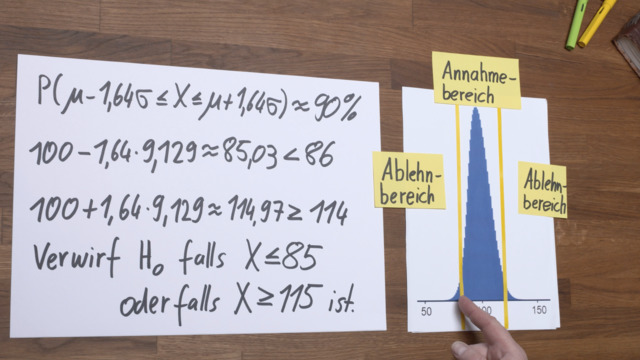 P(μ-1,64σ ≤ X ≤ μ+1,64σ) ≈ 90%
100-1,64·9,129≈85,03<86
100+1,64·9,129≈114,97≥114
Verwirf H₀ falls X≤85
oder falls X≥115 ist.
Annahme-
bereich
Ablehn-
bereich
Ablehn-
bereich
50 100 150